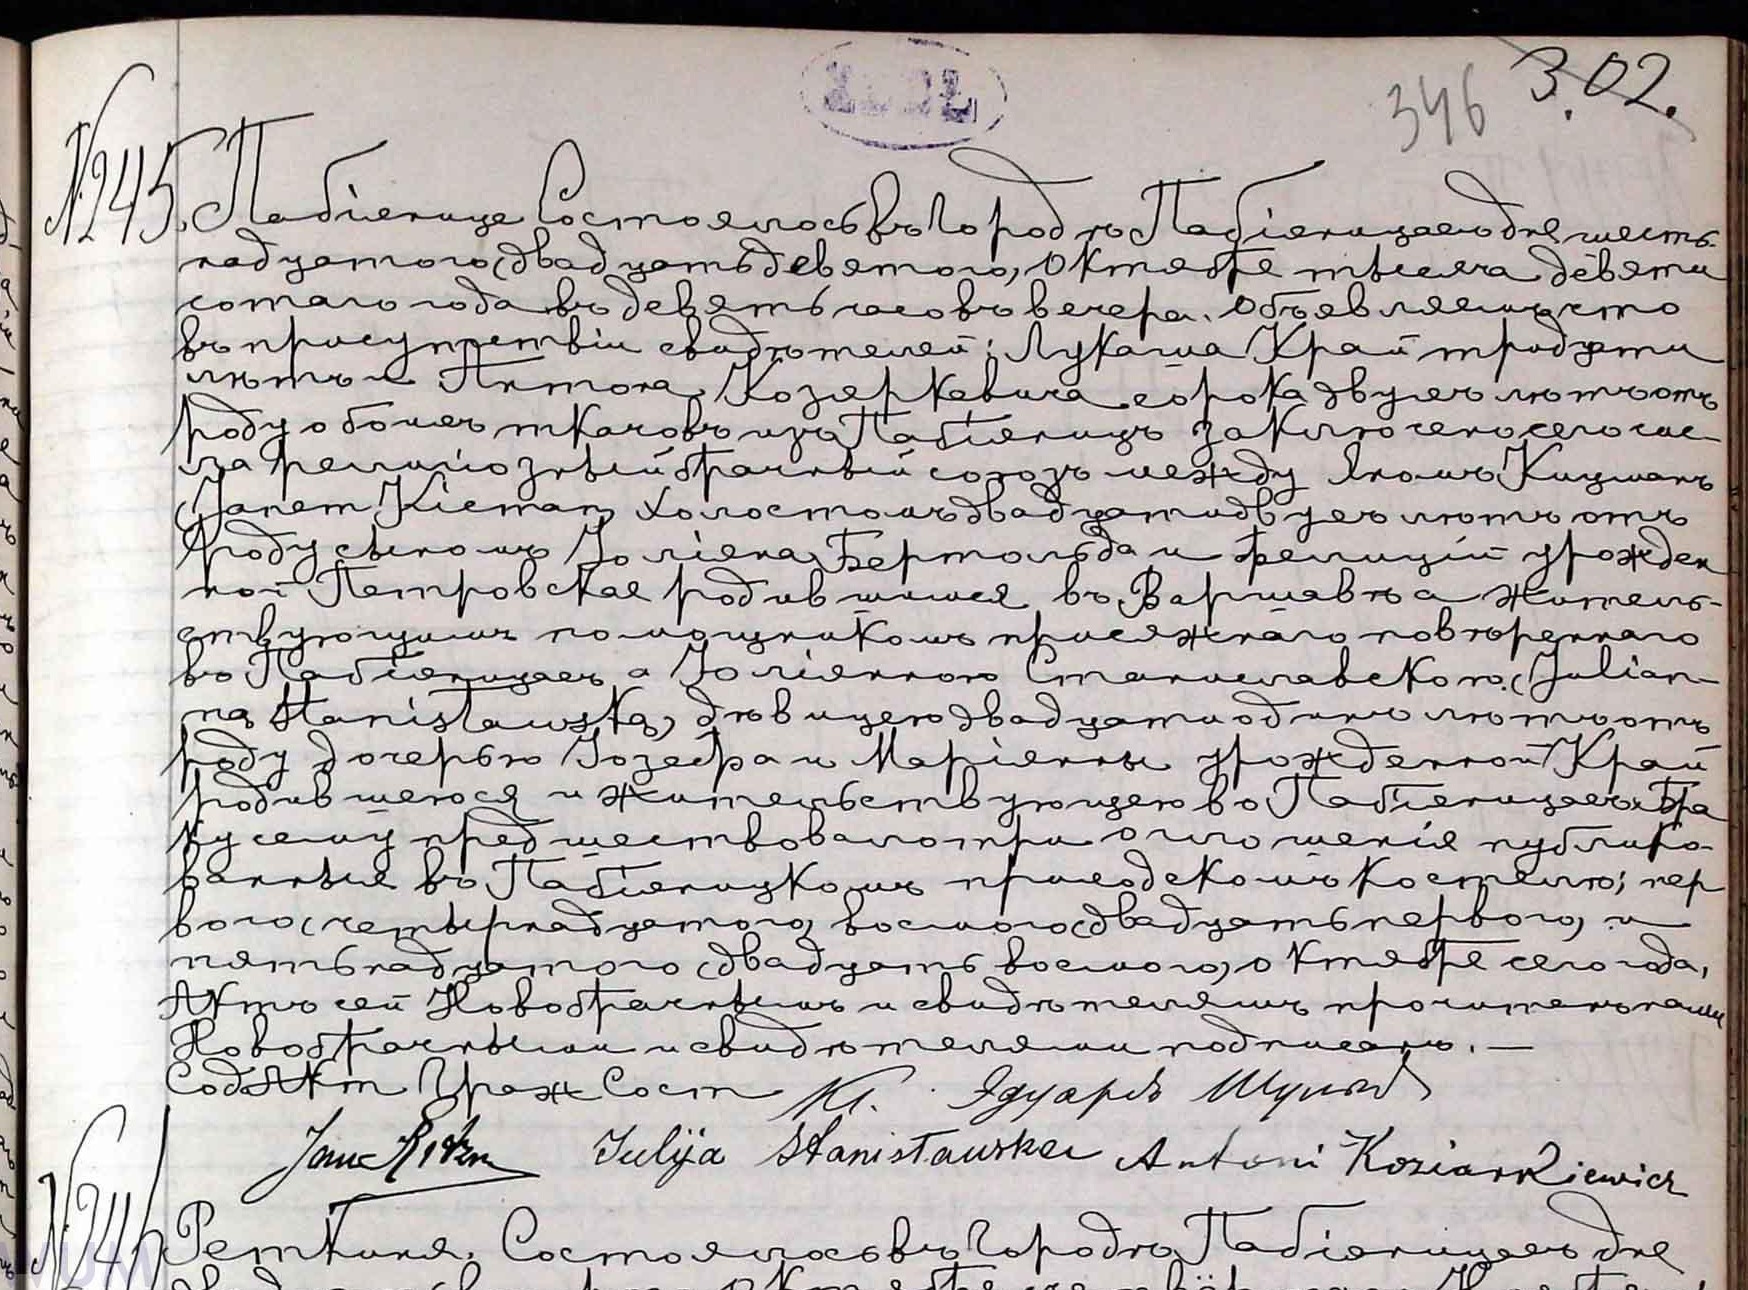 346 3.02.
№ 245. Пабіянице Состоялось въ Городѣ Пабіяницахъ дня шест-
надцатого (двадцать девятого) Октября тысяча девяти
сотаго года въ девять часовъ вечера. Объявляемъ что
въ присутствіи свидѣтелей: Лукаша Край тридцати
лѣтъ и Антона Козеркевича сорока двухъ лѣтъ отъ
роду обоихъ ткачовъ изъ Пабіяницъ заключено сего чис-
ла религіозный брачный союзъ между Яномъ Кицманъ
(Janem Kicman) холостомъ двадцати двухъ лѣтъ отъ
роду сыномъ Юліяна Бертольда и Фелиціи урожден
ной Петровская родившимся въ Варшавѣ а житель-
ствующимъ помощникомъ присяжнаго повѣреннаго
въ Пабіяницахъ а Юліянною Станиславскою (Julian-
ną Stanisławską) дѣвицею двадцати одинъ лѣтъ отъ
роду дочерью Іозефа и Маріянны урожденной Край
родившеюся и жительствующею въ Пабіяницахъ. Бра
ку сему предшествовало три оглошенія публико-
ванныя въ Пабіяницкомъ приходскомъ костелѣ; пер
вого (четырнадцатого) восмого (двадцать первого) и
пятьнадцатого (двадцать восмого) октября сего года,
Актъ сей Новобрачнымъ и свидѣтелямъ прочитанъ нами
Новобрачными и свидѣтелями подписанъ. —
Сод Акт Граж Сост Кс. Эдуардъ Шульц
Jan Kicman Julija Stanisławska Antoni Koziarkiewicz
№ 246 Реткиня. Состоялось въ Городѣ Пабіяницахъ дня